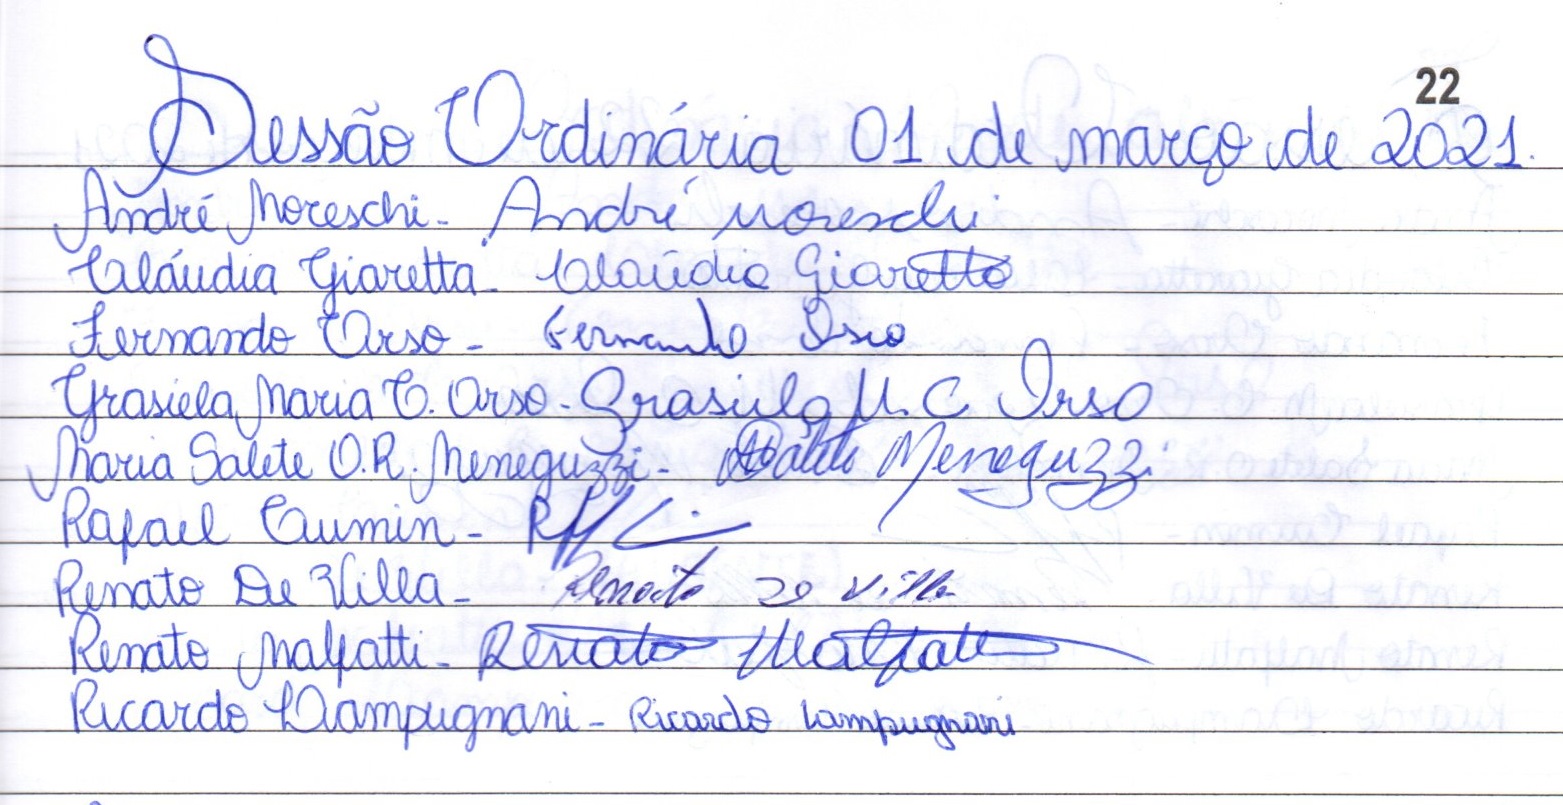 22
Sessão Ordinária 01 de março de 2021.
André Moreschi - André Moreschi
Claúdia Giaretta - Claúdia Giaretta
Fernando Orso - Fernando Orso
Grasiela Maria C. Orso - Grasiela M. C. Orso
Maria Salete O.R. Meneguzzi - Salete Meneguzzi
Rafael Cumin -
Renato De Villa - Renato De Villa
Renato Malfatti - Renato Malfatti
Ricardo Lampugnani - Ricardo Lampugnani